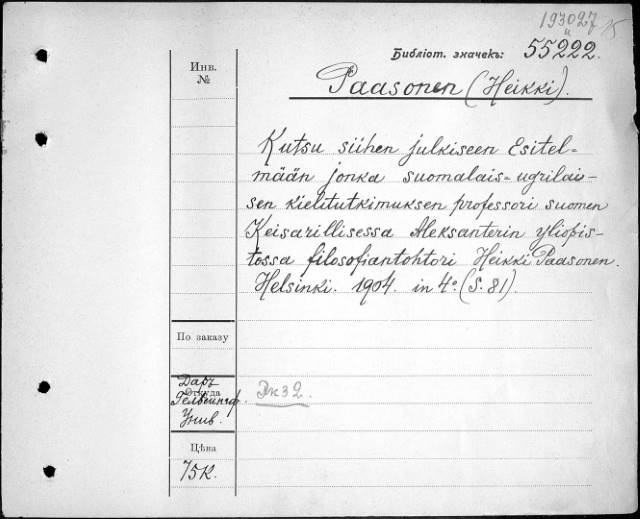 193027
и 15
Библіот. значекъ: 55222.
Инв.
№
Paasonen (Heikki).
Kutsu siihen julkiseen Esitel=
mään jonka suomalais=ugrilai-
sen kielitutkimuksen professori suomen
Keisarillisessa Aleksanterin yliopis-
tossa filosofiantohtori Heikki Paasonen.
Helsinki. 1904. in 4º. (S. 81).
По заказу
Откуда
Даръ
Гельсингф.
Унив.
Цѣна
75к.